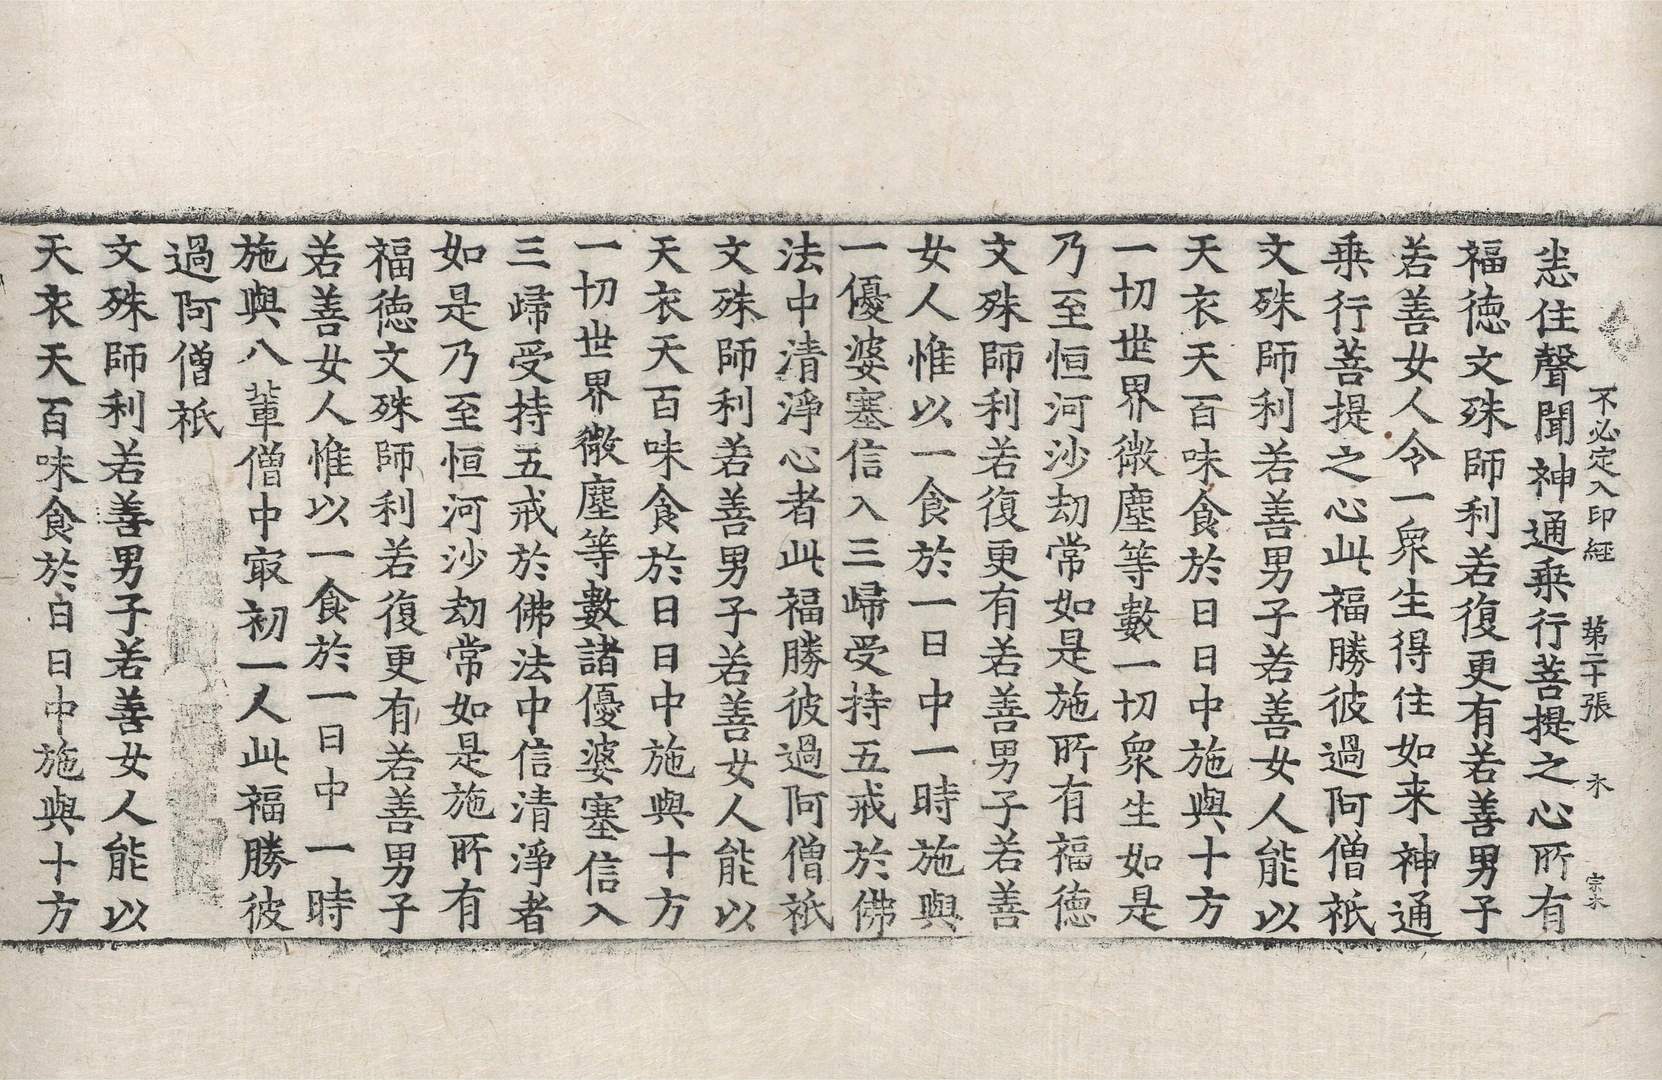 不必定入印經 第二十張 木 宗木
恙住聲聞神通乗行菩提之心所有
福徳文殊師利若復更有若善男子
若善女人令一衆生得住如来神通
乗行菩提之心此福勝彼過阿僧祇
文殊師利若善男子若善女人能以
天衣天百味食於日日中施與十方
一切世界微塵等數一切衆生如是
乃至恒河沙劫常如是施所有福徳
文殊師利若復更有若善男子若善
女人惟以一食於一日中一時施與
一優婆塞信入三歸受持五戒於佛
法中清淨心者此福勝彼過阿僧祇
文殊師利若善男子若善女人能以
天衣天百味食於日日中施與十方
一切世界微塵等數諸優婆塞信入
三歸受持五戒於佛法中信清淨者
如是乃至恒河沙劫常如是施所有
福徳文殊師利若復更有若善男子
若善女人惟以一食於一日中一時
施與八軰僧中㝡初一人此福勝彼
過阿僧祇
文殊師利若善男子若善女人能以
天衣天百味食於白日中施與十方